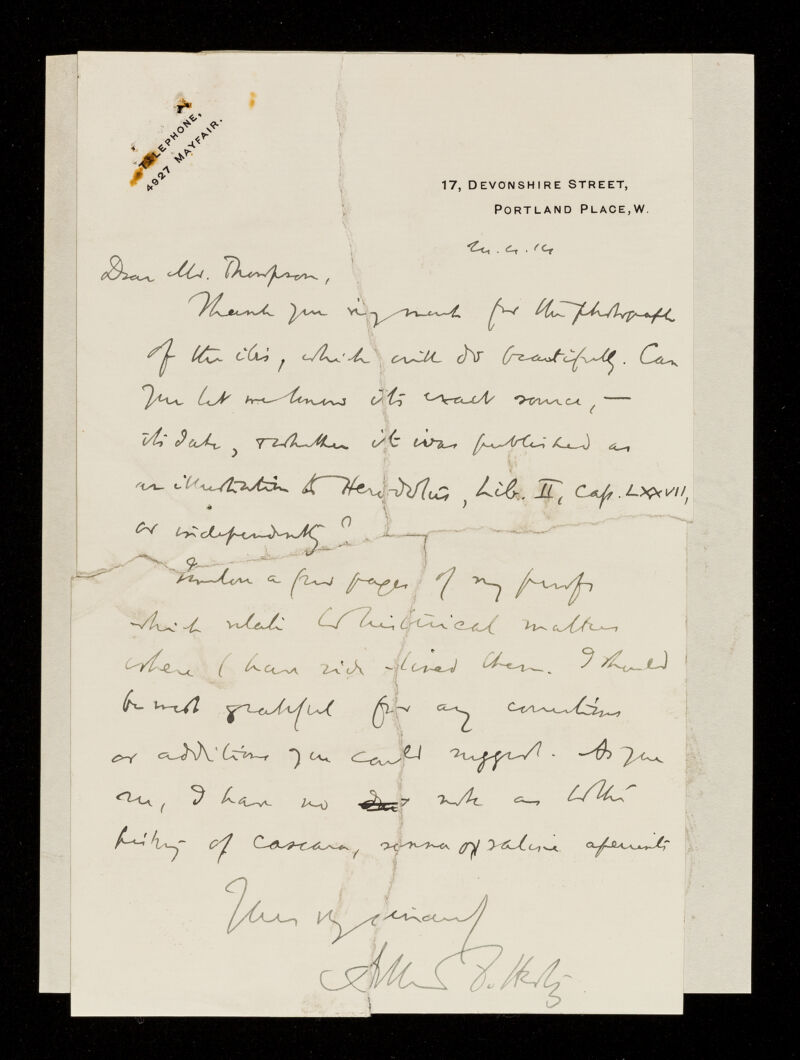 TELEPHONE,
4927 MAYFAIR.
17, DEVONSHIRE STREET,
PORTLAND PLACE, W.
Dear Mr. Thompson,
Thank you very much for the photograph
of the ibis, which will do beautifully. Can
you let me know its exact source, —
its date, & whether it was published as
an illustration to Herodotus, Lib. II, cap. LXXVII,
or independently?
I enclose a few pages of my proofs
which relate to historical matters
where I have side-lined them. I should
be most grateful for any corrections
or additions you could suggest. As you
see, I have no note as to the
history of cascara, senna or saline aperients
Yours very sincerely
Arthur F. Hertz